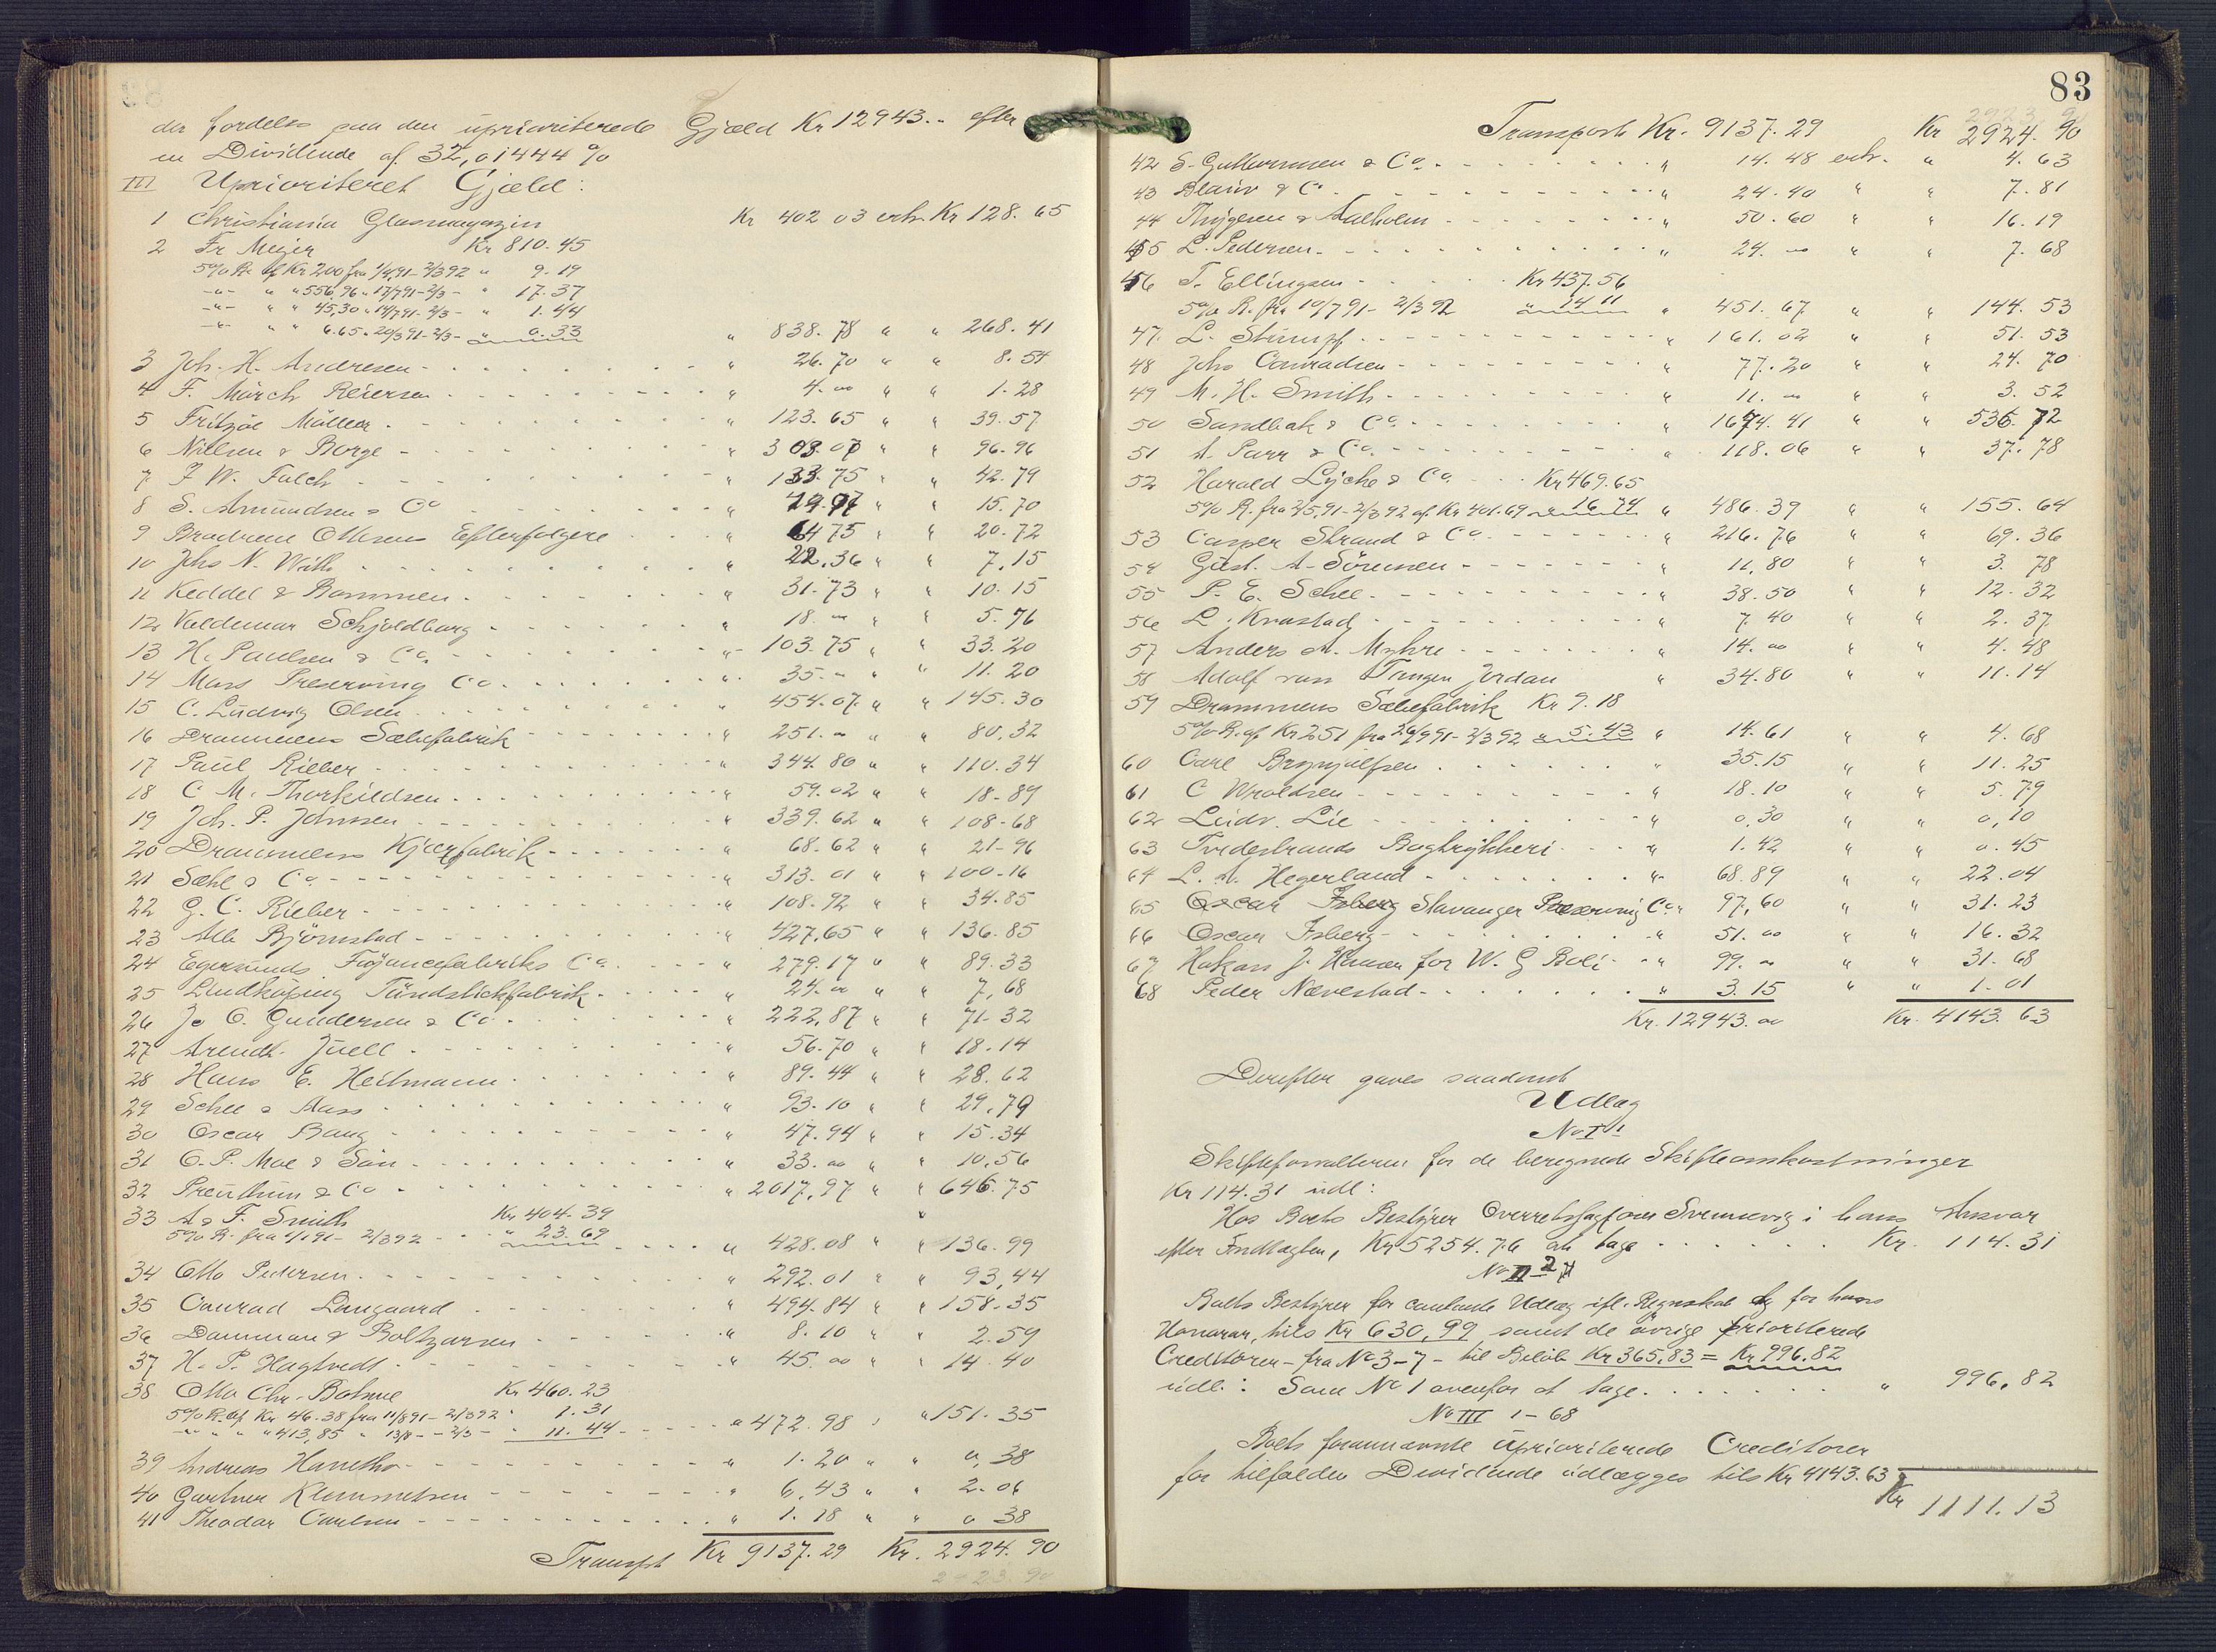 der fordeles paa den uprioriterede Gjæld Kr 12943.- efter
en Dividende af 32,01444 %
III Uprioriteret Gjæld:
1 Christiania Glasmagazin Kr 402 03 erh. Kr 128.65
2 Fr Meyer Kr 810.45
5% R. af Kr 200 fra 1/4 91-2/3 92 " 9.19
-"- " " 556,96 " 17/7 91-2/3 - " 17.37
-"- " " 45,30 " 14/7 91-2/3 - " 1.44
-"- " " 6.65 " 20/3 91-2/3 - " 0.33
" 838.78 " " 268.41
3 Joh. H. Andresen " 26.70 " " 8.54
4 F. Mörch Reiersen " 4.00 " " 1.28
5 Fritzöe Möller " 123.65 " " 39.57
6 Nielsen & Borge " 303.07 " " 96.96
7 F W. Falch " 133.75 " " 42.79
8 S. Amundsen & Co " 49.07 " " 15.70
9 Brødrene Ottesens Efterfølgere " 64 75 " " 20.72
10 Johs N. Wiith " 22.36 " " 7.15
11 Keddel & Bommen " 31.73 " " 10.15
12 Valdemar Schjoldborg " 18. " " " 5.76
13 H. Paulsen & Co. " 103.75 " " 33.20
14 Moss Preserving Co. " 35.- " " 11.20
15 C. Ludvig Olsen " 454.07 " " 145.30
16 Drammens Sæbefabrik " 251.- " " 80.32
17 Paul Rieber " 344.80 " " 110.34
18 C M. Thorkildsen " 59.02 " " 18.89
19 Joh. P. Johnsen " 339.62 " " 108.68
20 Drammens Kjæxfabrik " 68.62 " " 21-96
21 Sæhl & Co " 313.01 " " 100.16
22 G. C. Rieber " 108.92 " " 34.85
23 Alb Björnstad " 427.65 " " 136.85
24 Egersunds Fajancefabriks Co. " 279.17 " " 89.33
25 Lindköping Tändstickfabrik " 24.00 " " 7.68
26 J. O. Gundersen & Co " 222.87 " " 71.32
27 Arendt Juell " 56.70 " " 18.14
28 Hans E. Heitmann " 89.44 " " 28.62
29 Schee & Aass " 93.10 " " 29.79
30 Oscar Bang " 47.94 " " 15.34
31 O. P. Moe & Sön " 33.00 " " 10.56
32 Preuthun & Co " 2017,97 " " 646.75
33 A & F. Smith Kr 404.39
5% R. fra 1/1 91 - 2/3 92 " 23.69 " 428.08 " " 136.99
34 Otto Pedersen " 292.01 " " 93.44
35 Conrad Langaard " 494.84 " " 158.35
36 Damman & Boltzarsen " 8.10 " " 2.59
37 H. P. Hagtvedt " 45.00 " " 14.40
38 Otto Chr. Bohne Kr 460.23
5% R. af Kr 46.38 fra 11/8 91 - 2/3 92 " 1.31
-"- " " 413,85 " 13/8 - 2/3 - " 11.44 " 472.98 " " 151.35
39 Andreas Hanetho " 1.20 " " 0,38
40 Gartner Klemmetsen " 6.43 " " 2.06
41 Theodor Carlsen " 1.18 " " 0 38
Transpt Kr 9137.29 Kr. 2924.90
83
Transport Kr. 9137.29 Kr 2924.90
42 S. Guttormsen & Co. " 14.48 erh. " 4.63
43 Blauw & Co " 24.40 " " 7.81
44 Thygesen & Aalholm " 50.60 " " 16.19
45 L. Pedersen " 24.- " " 7.68
46 T. Ellingsen Kr 437.56
5% R. fra 10/7 91 - 2/3 92 " 14 11 " 451.67 " " 144.53
47. L. Stumpf " 161.02 " " 51.53
48 Johs Conradsen " 77.20 " " 24.70
49 M. H. Smith " 11.- " " 3.52
50 Sandbak & Co. " 1674.41 " " 536.72
51 A. Parr & Co. " 118.06 " " 37.78
52 Harald Lyche & Co. Kr 469.65
5% R. fra 2/5 91-2/3 92 af Kr 401.69 " 16.74 " 486.39 " " 155.64
53 Casper Strand & Co. " 216.76 " " 69.36
54 Gust. A. Sörensen " 11,80 " " 3.78
55 P. E. Schee " 38.50 " " 12.32
56 L. Knastad " 7.40 " " 2.37
57 Anders A. Myhre " 14.00 " " 4.48
58 Adolf van Tangen Jordan " 34.80 " " 11.14
59 Drammens Sæbefabrik Kr 9.18
5% R. af Kr 251 fra 26/9 91 - 2/3 92 " 5.43 " 14.61 " " 4.68
60 Carl Brynjulfsen " 35.15 " " 11.25
61 C Wroldsen " 18.10 " " 5.79
62 Ludv. Lie " 0,30 " " 0,10
63 Tvedestrands Bogtrykkeri " 1.42 " " 0.45
64 L. A. Hegerland " 68.89 " " 22.04
65 Oscar Isberg Stavanger Preserving Co " 97,60 " " 31.23
66 Oscar Isberg " 51.00 " " 16.32
67 Hakon J. Hansen for W. G Boli " 99.- " " 31.68
68 Peder Nævestad " 3.15 " " 1.01
Kr. 12943.00 Kr. 4143.63
Derefter gaves saadant
Udlæg
No I 1
Skifteforvalteren for de beregnede Skifteomkostninger
Kr 114.31 udl:
Hos Boets Bestyrer Overretssagfører Svennevig i hans Ansvar
efter Indtægten, Kr 5254.76 at tage Kr. 114.31
No II 2-7
Boets Bestyrer for contante Udlæg ifl. Regnskab og for hans
Honorar, tils Kr 630,99 samt de övrige prioriterede
Creditorer - fra No 3-7 - til Beløb Kr 365,83 = Kr 996.82
udl.: Som No 1 ovenfor at tage. " 996,82
No III 1-68
Boets forannævnte uprioriterede Creditorer
for tilfalden Dividende udlægges tils Kr 4143.63
Kr 1111.13